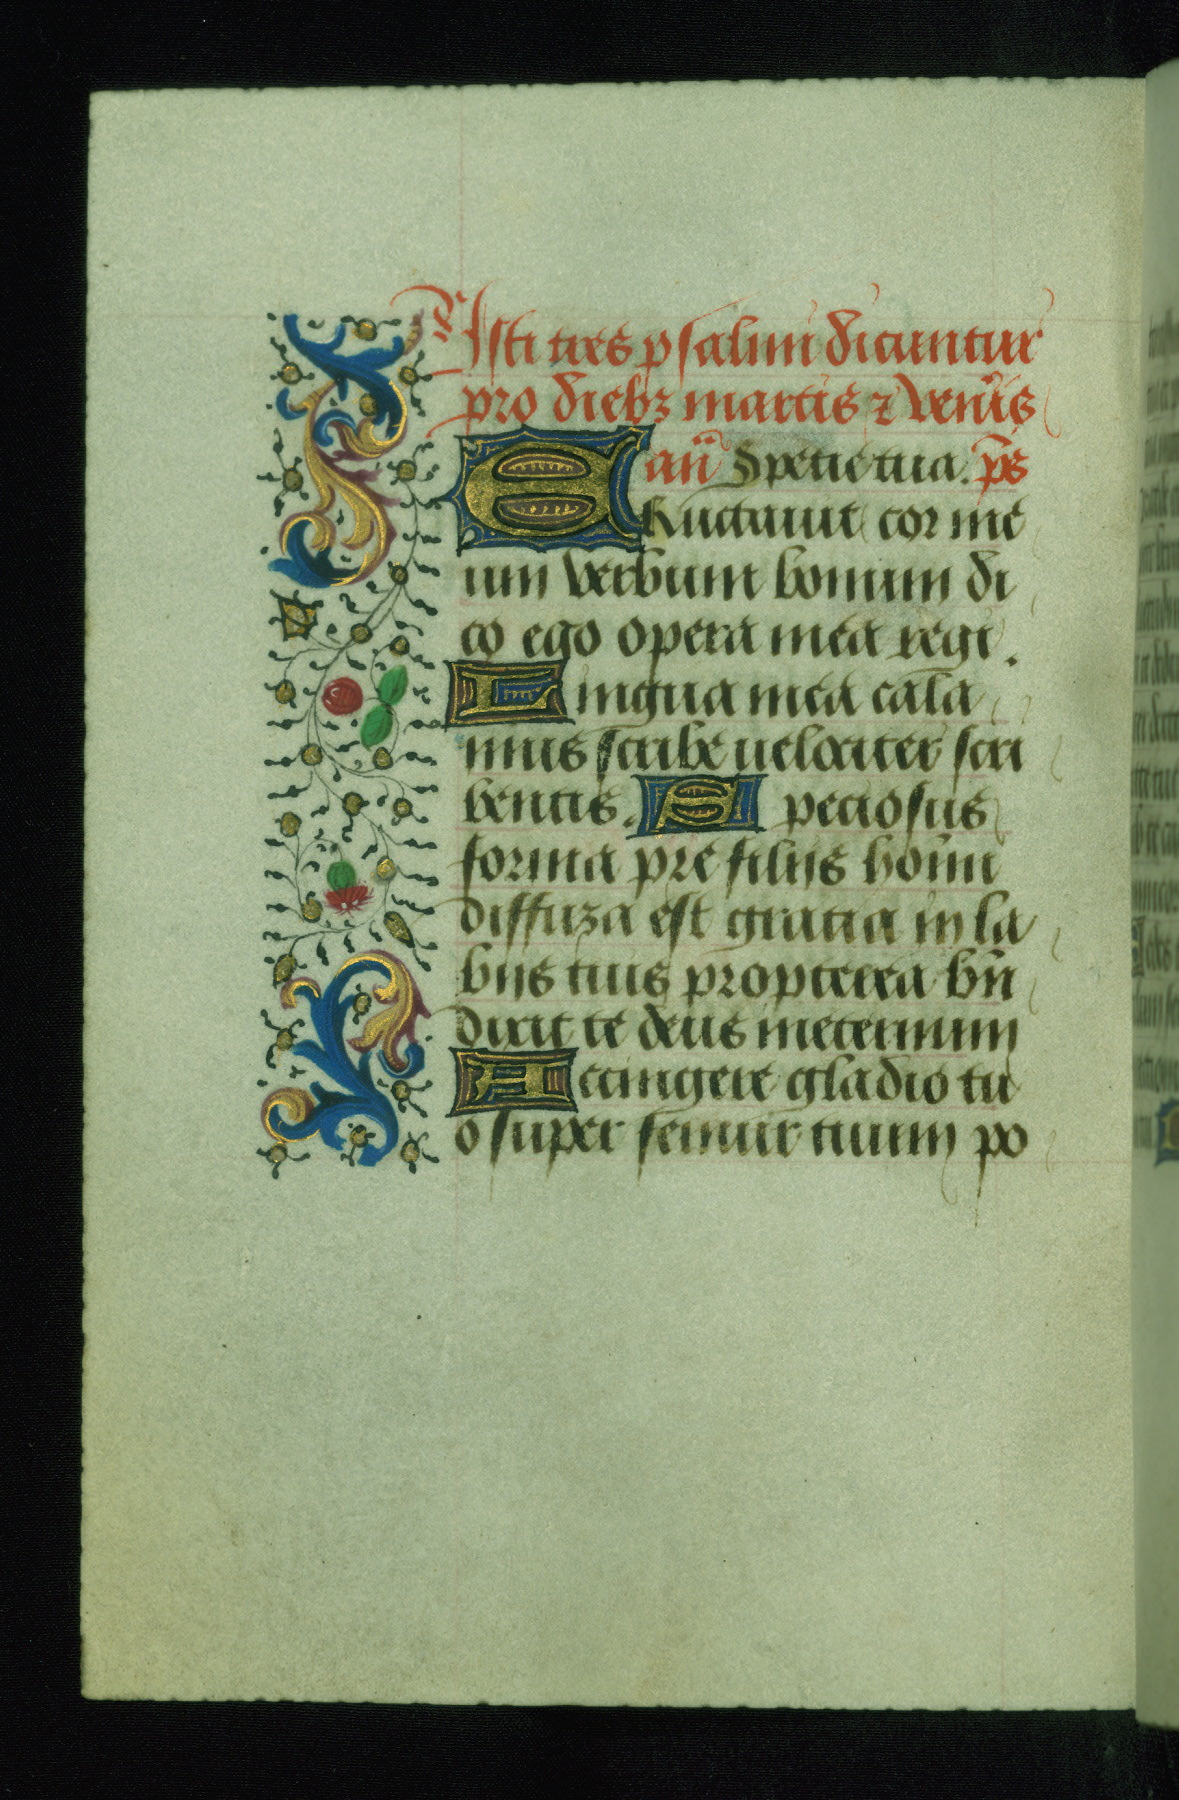 Isti tres psalmi dicuntur
pro dieb3 martis ⁊ veneris
an̄ Specie tua. ps̄
ERuctauit cor me
um verbum bonum di
co ego opera mea regi.
Lingua mea cala
mus scribe uelociter scri
bentis. Speciosus
forma pre filiis hoīm
diffuza est gratia in la
biis tuis propterea bn̄
dixit te deus ineternum
Accingere gladio tu
o super femur tuum po